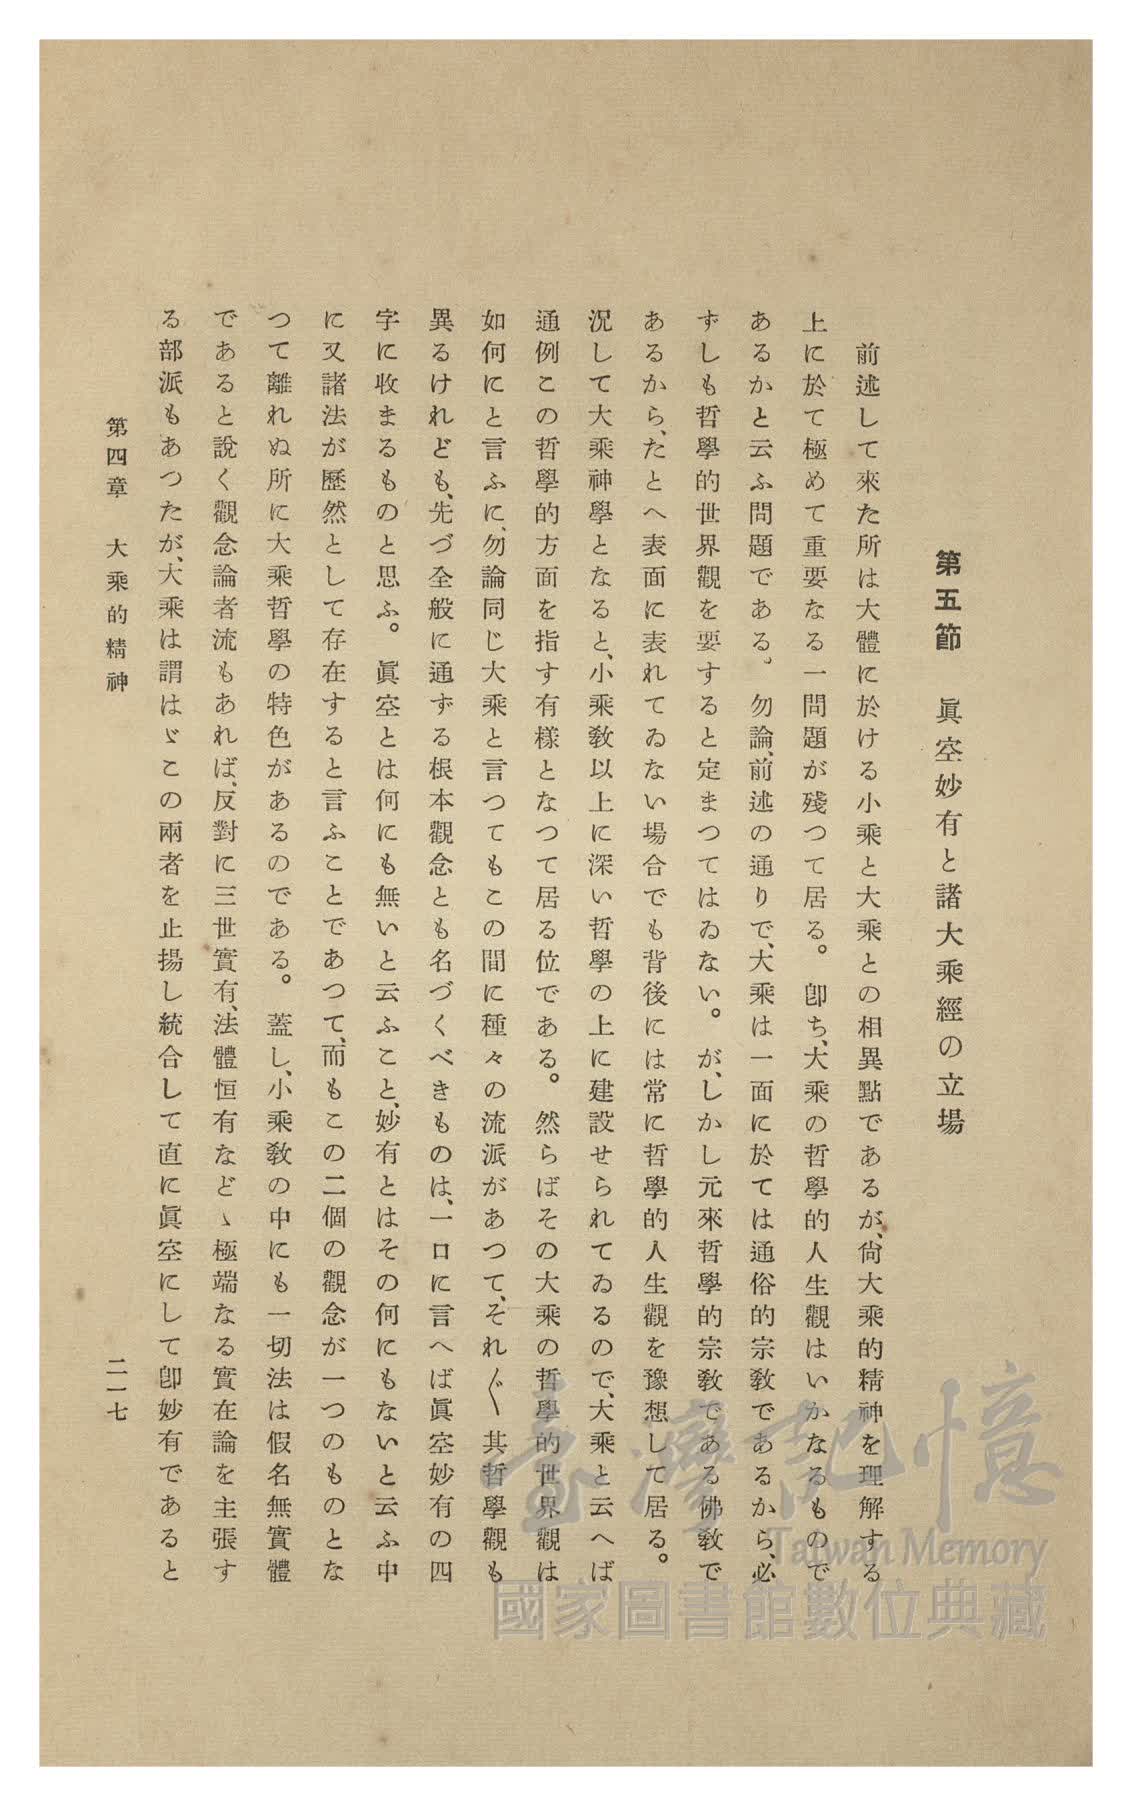 第五節　眞空妙有と諸大乘經の立場
前述して來た所は大體に於ける小乘と大乘との相異點であるが、尙大乘的精神を理解する
上に於て極めて重要なる一問題が殘つて居る。卽ち、大乘の哲學的人生觀はいかなるもので
あるかと云ふ問題である。勿論、前述の通りで、大乘は一面に於ては通俗的宗敎であるから、必
ずしも哲學的世界觀を要すると定まつてはゐない。が、しかし元來哲學的宗敎である佛敎で
あるから、たとへ表面に表れてゐない場合でも背後には常に哲學的人生觀を豫想して居る。
況して大乘神學となると、小乘敎以上に深い哲學の上に建設せられてゐるので、大乘と云へば
通例この哲學的方面を指す有樣となつて居る位である。然らばその大乘の哲學的世界觀は
如何にと言ふに、勿論同じ大乘と言つてもこの間に種々の流派があつて、それ〴〵其哲學觀も
異るけれども、先づ全般に通ずる根本觀念とも名づくべきものは、一口に言へば眞空妙有の四
字に收まるものと思ふ。眞空とは何にも無いと云ふこと、妙有とはその何にもないと云ふ中
に又諸法が歷然として存在すると言ふことであつて、而もこの二個の觀念が一つのものとな
つて離れぬ所に大乘哲學の特色があるのである。蓋し、小乘敎の中にも一切法は假名無實體
であると說く觀念論者流もあれば、反對に三世實有、法體恒有などゝ極端なる實在論を主張す
る部派もあつたが、大乘は謂はゞこの兩者を止揚し統合して直に眞空にして卽妙有であると
第四章　大乘的精神　二一七
臺灣記憶
Taiwan Memory
國家圖書館數位典藏